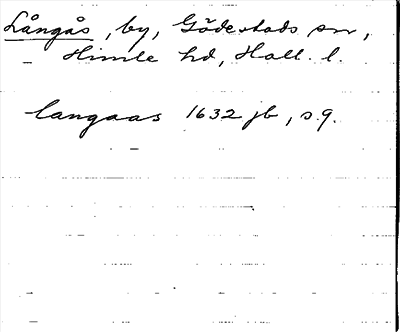 Långås, by, Gödestads sn,
Himle hd, Hall. l.
langaas 1632 jb, s. 9.